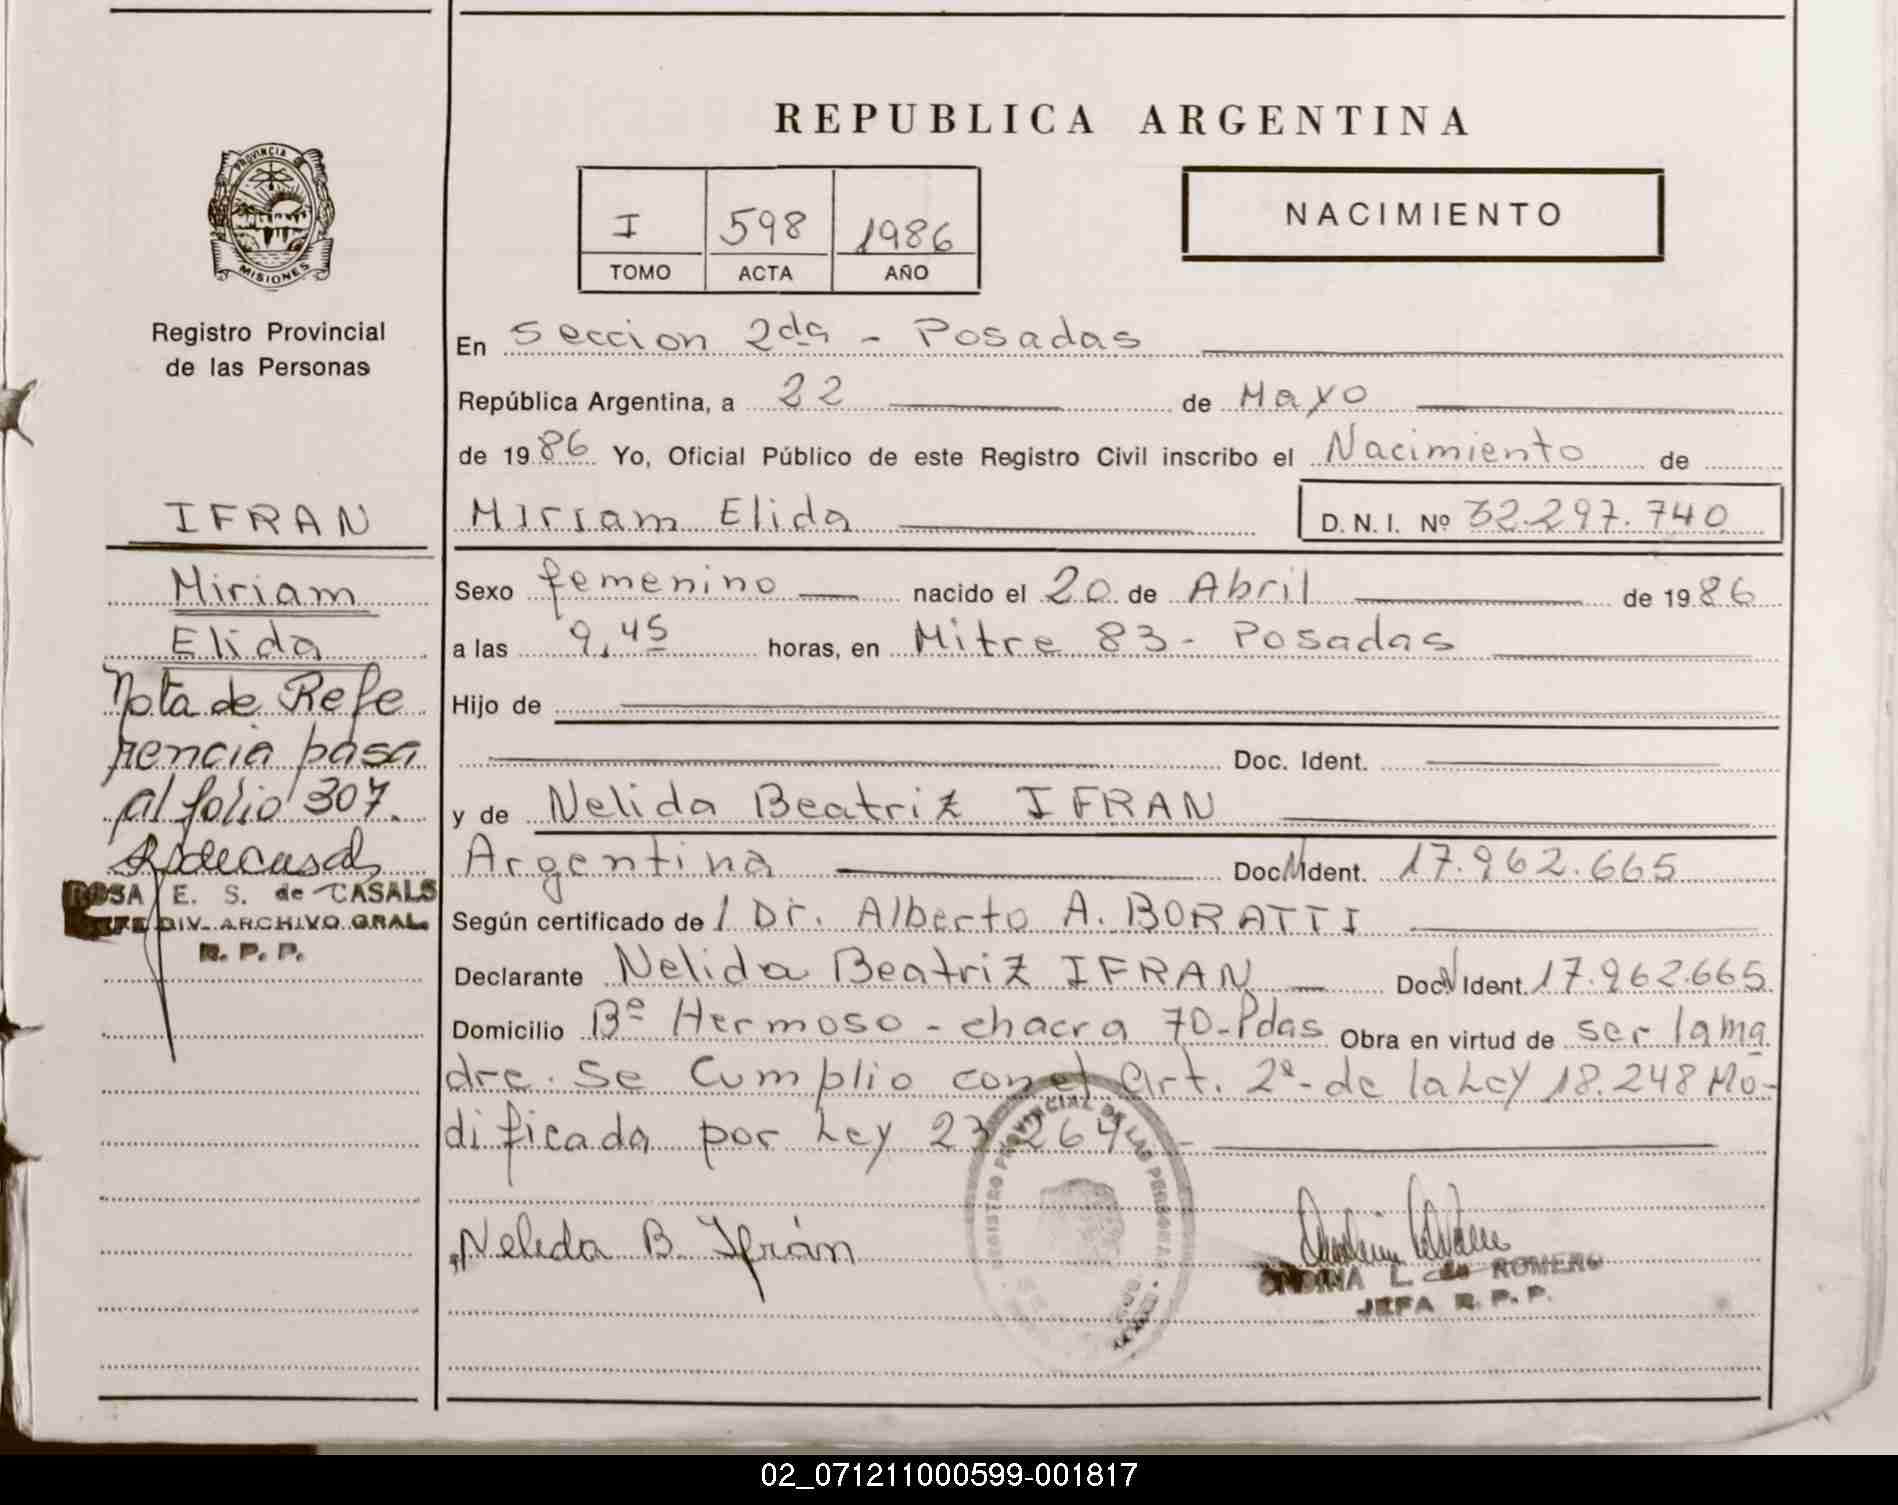 REPUBLICA ARGENTINA
PROVINCIA DE
MISIONES
I 598 1986
TOMO ACTA AÑO
NACIMIENTO
Registro Provincial
de las Personas
En Seccion 2da - Posadas
República Argentina, a 22 de Mayo
de 1986 Yo, Oficial Público de este Registro Civil inscribo el Nacimiento de
Miriam Elida D. N. I. Nº 32.297.740
Sexo femenino nacido el 20 de Abril de 1986
a las 9,45 horas, en Mitre 83 - Posadas
Hijo de
Doc. Ident.
y de Nelida Beatriz IFRAN
Argentina Doc. N Ident. 17.962.665
Según certificado de / Dr. Alberto A. BORATTI
Declarante Nelida Beatriz IFRAN Doc. N Ident. 17.962.665
Domicilio Bº Hermoso - chacra 70-Pdas Obra en virtud de ser la ma
dre. Se Cumplio con el Art. 2º- de la Ley 18.248 Mo-
dificada por Ley 23.264 -
Nelida B. Ifrán
REGISTRO PROVINCIAL DE LAS PERSONAS
ONDINA L. de ROMERO
JEFA R. P. P.
IFRAN
Miriam
Elida
Nota de Refe
rencia pasa
al folio 307.
ROSA E. S. de CASALS
JEFE DIV. ARCHIVO GRAL.
R. P. P.
02_071211000599-001817